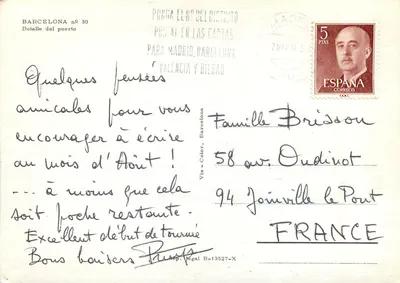 BARCELONA nº 30
Detalle del puerto
PONGA EL Nº DEL DISTRITO
POSTAL EN LAS CARTAS
PARA MADRID, BARCELONA,
VALENCIA Y BILBAO
5
PTAS
ESPAÑA
CORREOS
Quelques pensées
amicales pour vous
encourager à écrire
au mois d'Août !
... à moins que cela
soit poche restante.
Excellent début de tournée
Bons baisers
Famille Brisson
58 av. Oudinot
94 Joinville le Pont
FRANCE
Vis-Color, Barcelona
Legal B-13527-X